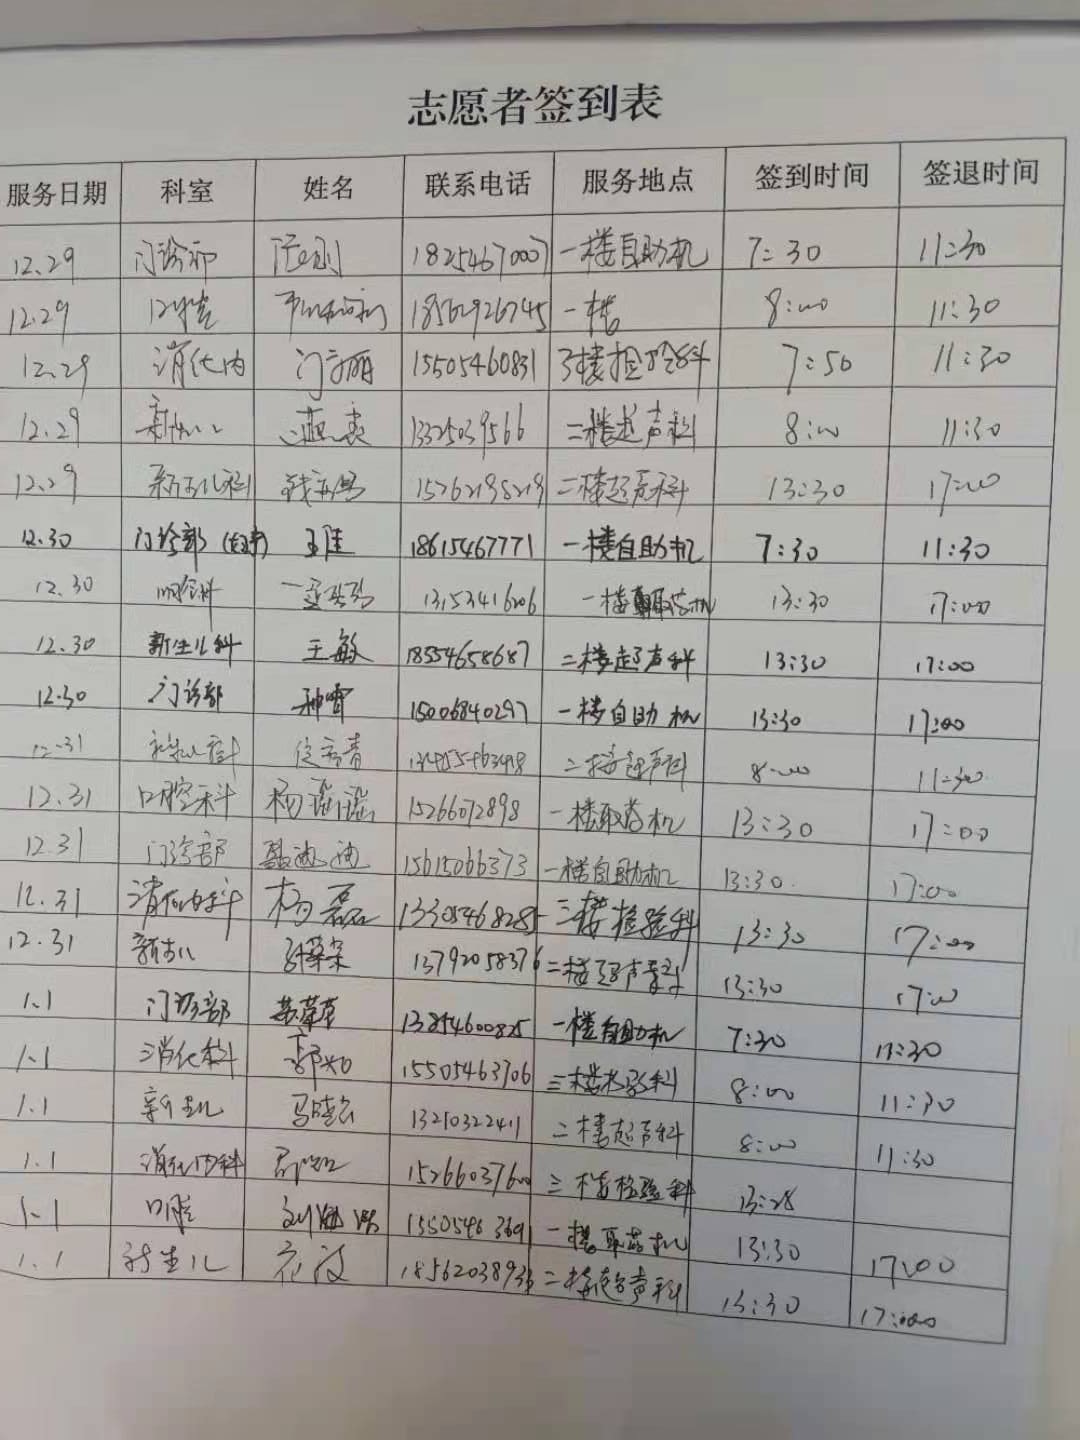 志愿者签到表
服务日期 科室 姓名 联系电话 服务地点 签到时间 签退时间
12.29 门诊部 18254670007 一楼自助机 7:30 11:30
12.29 口腔 18562926745 一楼 8:00 11:30
12.29 消化内 门方丽 15505460831 3楼检验科 7:50 11:30
12.29 燕爽 13325039566 二楼超声科 8:00 11:30
12.29 新生儿科 15262198219 二楼超声科 13:30 17:00
12.30 门诊部 王佳 18615467771 一楼自助机 7:30 11:30
12.30 13153416206 一楼取药机 13:30 17:00
12.30 新生儿科 王敏 18554658687 二楼超声科 13:30 17:00
12.30 门诊部 种雪 15006840297 一楼自助机 13:30 17:00
12.31 二楼超声科 8:00 11:30
12.31 口腔科 杨谣谣 15266072898 一楼取药机 13:30 17:00
12.31 门诊部 聂迪迪 15615066373 一楼自助机 13:30 17:00
12.31 消化内科 杨磊 13305468285 三楼检验科 13:30 17:00
12.31 新生儿 13792058376 二楼超声科 13:30 17:00
1.1 门诊部 13254600825 一楼自助机 7:30 11:30
1.1 消化科 15505463706 三楼检验科 8:00 11:30
1.1 新生儿 马晓云 13210322411 二楼超声科 8:00 11:30
1.1 消化内科 15266037600 三楼检验科 13:28
1.1 口腔 13505463691 一楼取药机 13:30 17:00
1.1 新生儿 18562038936 二楼超声科 13:30 17:00